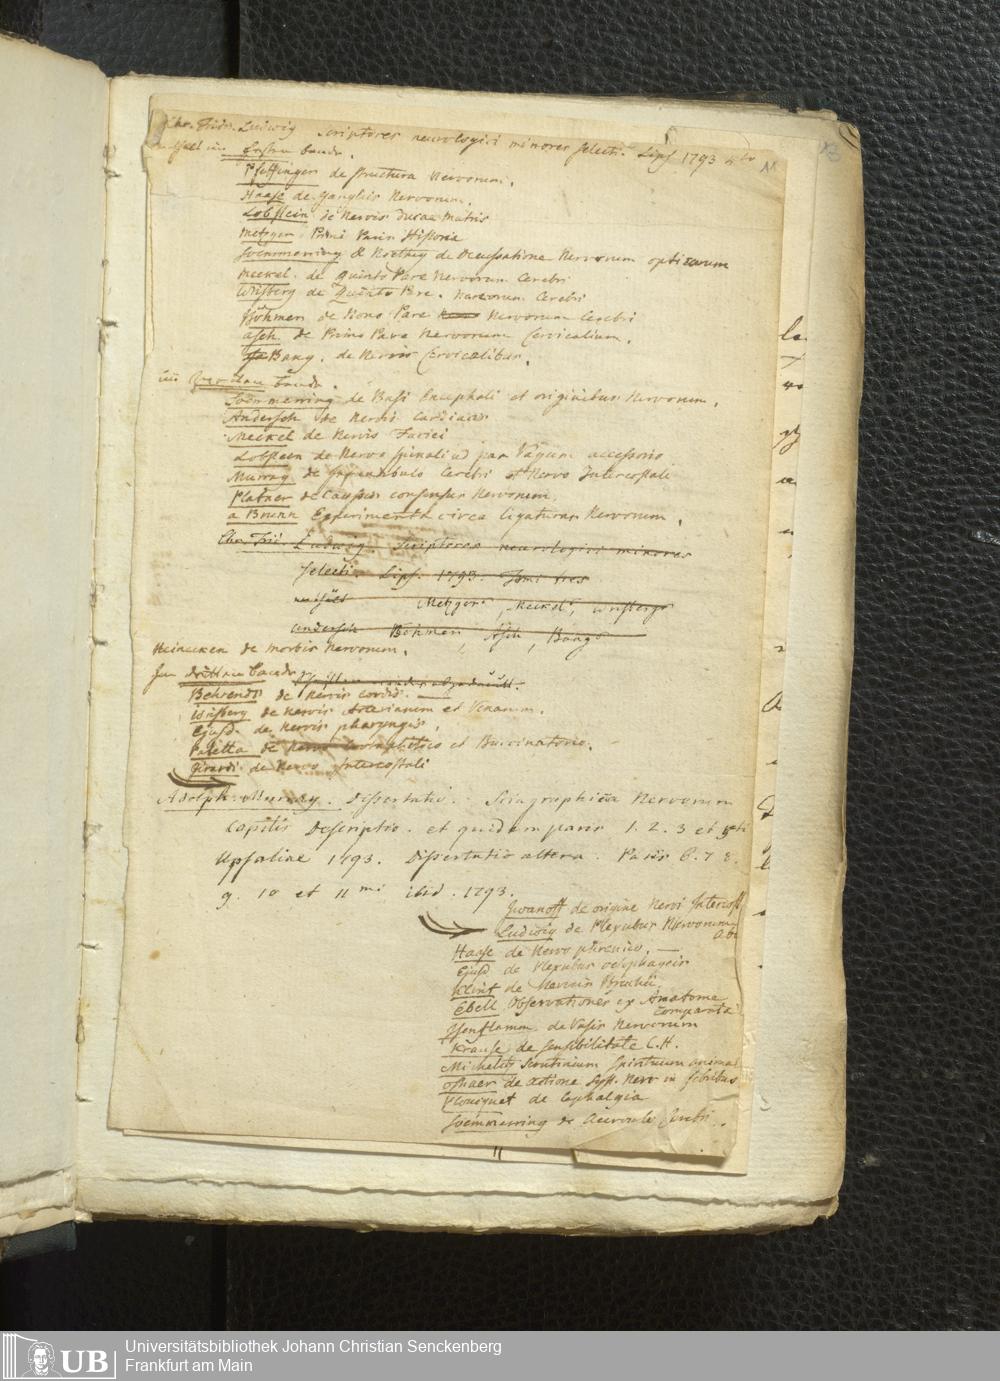 Chr. Fridr. Ludwig Scriptores neurologici minores selecti. Lips. 1793 4to
11
13
im Ersten Bande.
Pfeffinger de structura Nervorum.
Haase de gangliis Nervorum.
Lobstein de Nervis Durae Matris
Metzger Primi Paris Historia
Soemmerring & Noethig de Decussatione Nervorum opticorum
Meckel. de Quinto Pare Nervorum Cerebri
Wrisberg de Quinto Pare. Nervorum Cerebri
Böhmer de Nono Pare Nervorum Cerebri
Asch. de Primo Pare Nervorum Cervicalium.
Bang. de Nervis Cervicalibus.
im Zweiten Bande.
Soemmerring de Basi Encephali et originibus Nervorum.
Andersch de Nervis Cardiacis
Meckel de Nervis Faciei
Lobstein de Nervo spinali ad par Vagum accessorio
Murray de Infundibulo Cerebri et Nervo Intercostali
Platner de Caussis consensus Nervorum.
a Brunn Experimenta circa ligaturas Nervorum.
Chr. Frid. Ludwig. Scriptores neurologici minores
selecti. Lips. 1793. Tomi tres
Metzger, Meckel, Wrisberg
Andersch Böhmer, Asch, Bang
Heinecken de morbis Nervorum.
Im dritten Bande
Behrends de Nervis cordis.
Wrisberg de Nervis Arteriarum et Venarum.
Ejusd. de Nervis pharyngis.
Paletta de Nervo Crotaphitico et Buccinatorio.
Girardi de Nervo Intercostali
Adolph. Murray. Dissertatio. Sciagraphica Nervorum
Capitis Descriptio. et quidem paris 1. 2. 3 et 4ti
Upsaliae 1793. Dissertatio altera. Paris 6. 7 8.
9. 10 et 11mi ibid. 1793.
Iwanoff de origine Nervi Intercost
Ludwig de Plexubus Nervorum
Haase de Nervo phrenico.
Ejusd de Plexubus oesophageis
Klint de Nervis Brachii
Ebell Observationes ex Anatome
comparata
Isenflamm de Vasis Nervorum
Krause de sensibilitate C.H.
Michelitz Scrutinium Spirituum anima
de Actione Syst. Nerv in febribus
Ploucquet de Cephalgia
Soemmerring de Acervulo Cerebri.
UB
Universitätsbibliothek Johann Christian Senckenberg
Frankfurt am Main